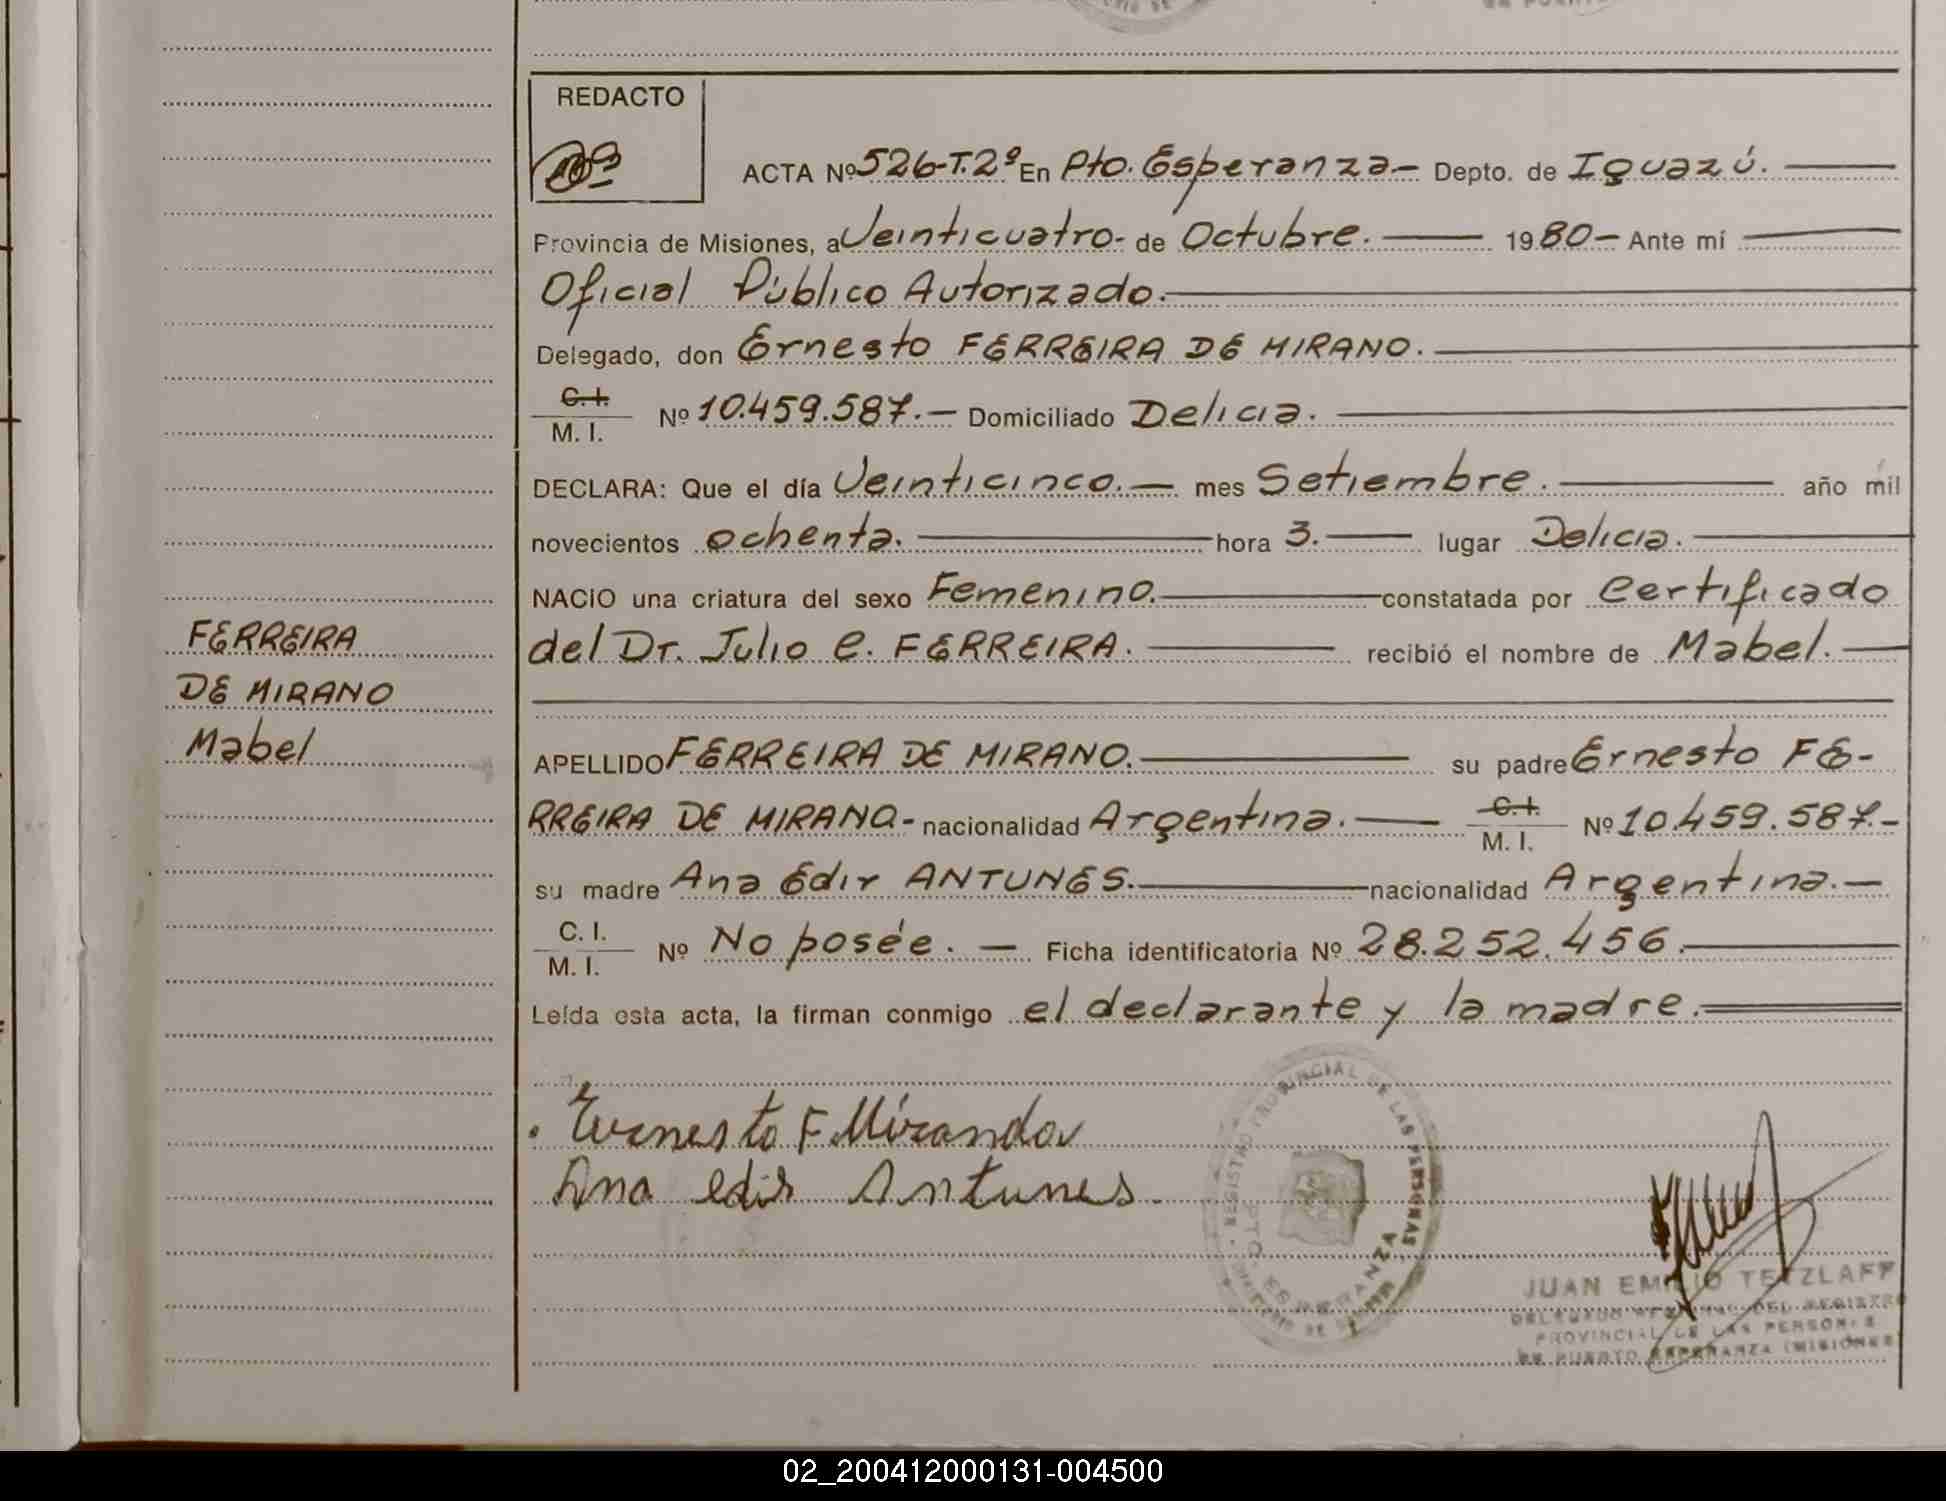 REDACTO
ACTA Nº 526-T.2º En Pto. Esperanza.- Depto. de Iguazú.
Provincia de Misiones, a Veinticuatro.- de Octubre. 1980.- Ante mí
Oficial Público Autorizado.
Delegado, don Ernesto FERREIRA DE MIRANO.
C. I.
M. I. Nº 10.459.587.- Domiciliado Delicia.
DECLARA: Que el día Veinticinco.- mes Setiembre. año mil
novecientos ochenta. hora 3. lugar Delicia.
NACIO una criatura del sexo Femenino. constatada por Certificado
del Dr. Julio C. FERREIRA. recibió el nombre de Mabel.
FERREIRA
DE MIRANO
Mabel
APELLIDO FERREIRA DE MIRANO. su padre Ernesto FE-
RREIRA DE MIRANO.- nacionalidad Argentina. C. I. M. I. Nº 10.459.587.-
su madre Ana Edir ANTUNES. nacionalidad Argentina.-
C. I.
M. I. Nº No posée.- Ficha identificatoria Nº 28.252.456.
Leída esta acta, la firman conmigo el declarante y la madre.
Ernesto F. Miranda
Ana edir Antunes.
REGISTRO PROVINCIAL DE LAS PERSONAS
PTO. ESPERANZA
JUAN EMILIO TETZLAFF
DELEGADO DEL REGISTRO
PROVINCIAL DE LAS PERSONAS
DE PUERTO ESPERANZA (MISIONES)
02_200412000131-004500